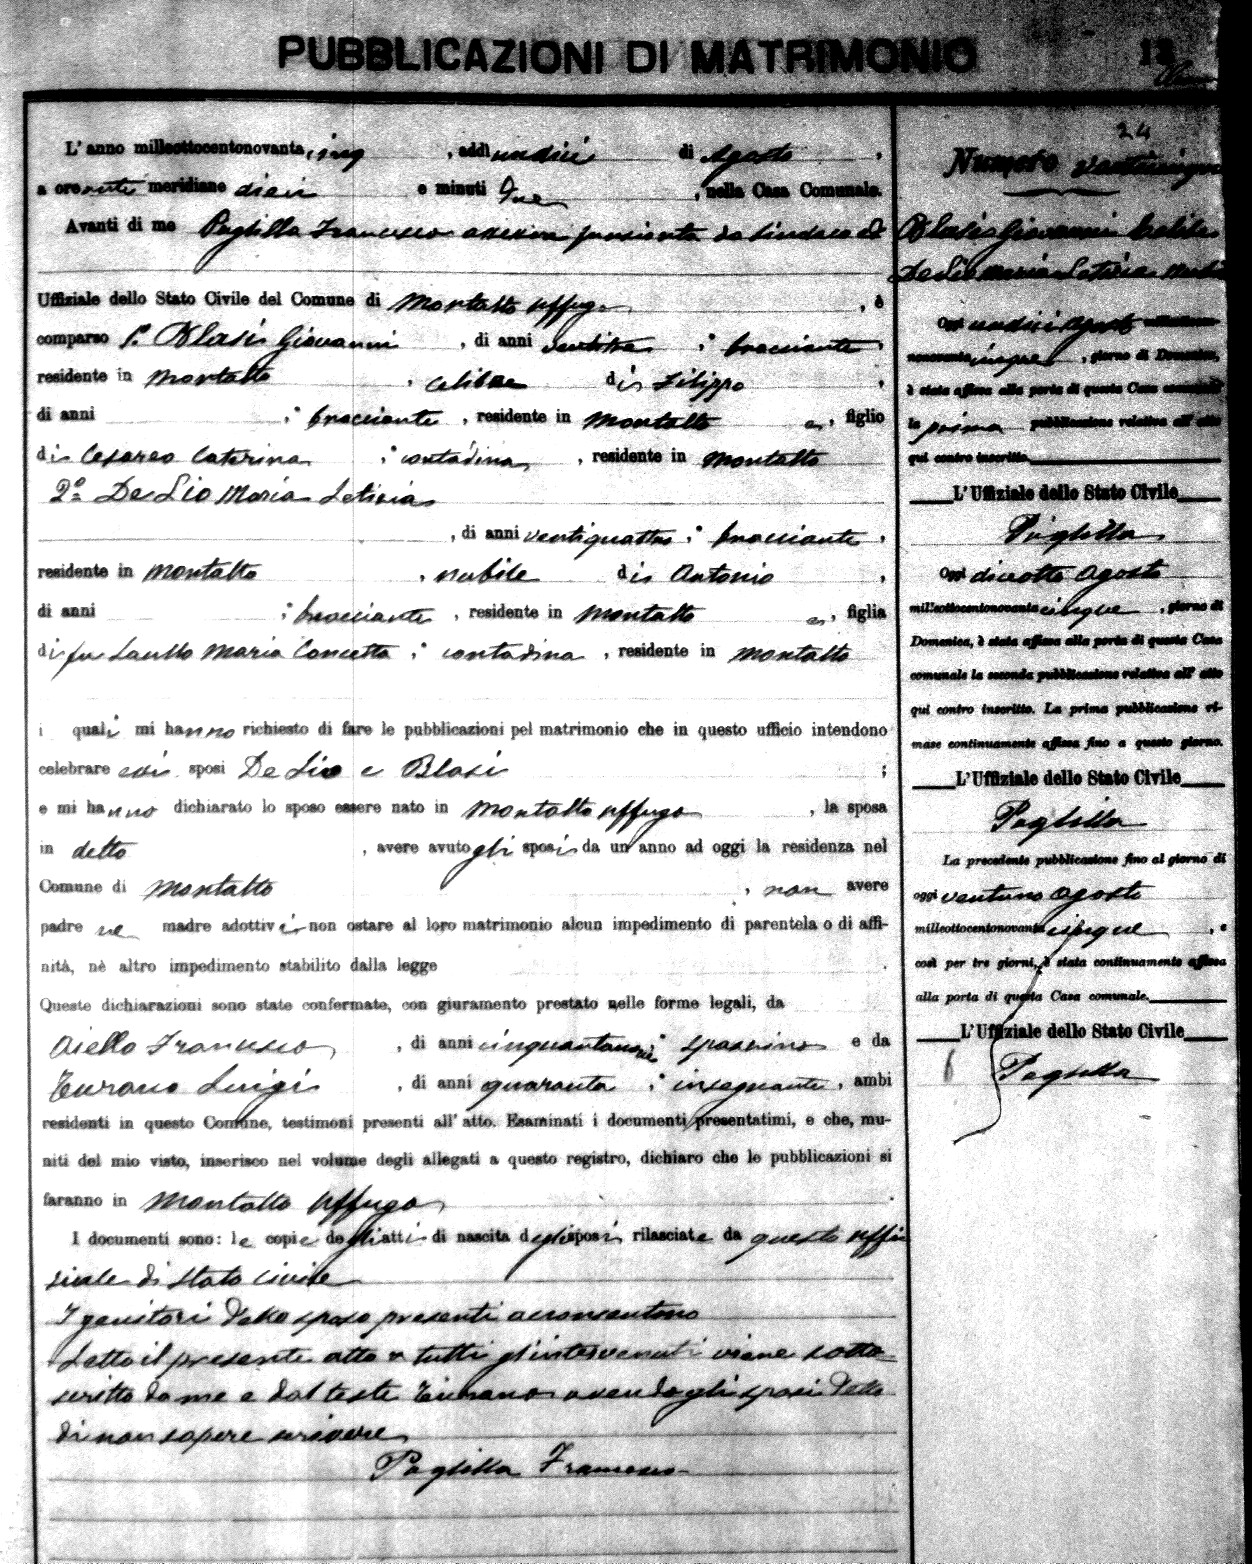 PUBBLICAZIONI DI MATRIMONIO
L'anno milleottocentonovanta cinq, addì undici di Agosto,
a ore meridiane dieci e minuti due, nella Casa Comunale.
Avanti di me Puglilla Francesco assessore funzionante da Sindaco ed
Uffiziale dello Stato Civile del Comune di Montalto Uffugo, è
comparso 1° Blasi Giovanni, di anni ventitre; bracciante,
residente in Montalto, celibe di Filippo,
di anni ; bracciante, residente in Montalto e, figlio
di Cesareo Caterina; contadina, residente in Montalto
2° De Lio Maria Letizia
, di anni ventiquattro; bracciante,
residente in Montalto, nubile di Antonio,
di anni ; bracciante, residente in Montalto e, figlia
di fu Maria Concetta; contadina, residente in Montalto
i quali mi hanno richiesto di fare le pubblicazioni pel matrimonio che in questo ufficio intendono
celebrare essi sposi De Lio e Blasi;
e mi hanno dichiarato lo sposo essere nato in Montalto Uffugo, la sposa
in detto, avere avuto gli sposi da un anno ad oggi la residenza nel
Comune di Montalto, non avere
padre ne madre adottivi non ostare al loro matrimonio alcun impedimento di parentela o di affi-
nità, nè altro impedimento stabilito dalla legge.
Queste dichiarazioni sono state confermate, con giuramento prestato nelle forme legali, da
Aiello Francesco, di anni; spazzino e da
Turano Luigi, di anni quaranta; insegnante, ambi
residenti in questo Comune, testimoni presenti all'atto. Esaminati i documenti presentatimi, e che, mu-
niti del mio visto, inserisco nel volume degli allegati a questo registro, dichiaro che le pubblicazioni si
faranno in Montalto Uffugo.
I documenti sono: le copie degli atti di nascita degli sposi rilasciate da questo uffi
ziale di Stato Civile
I genitori dello sposo presenti acconsentono
Letto il presente atto a tutti gl'intervenuti viene sotto=
scritto da me e dal teste Turano avendo gli sposi detto
di non sapere scrivere
Puglilla Francesco
24
Numero
Blasi Giovanni Celibe
De Lio Maria Letizia Nubile
Oggi undici Agosto milleotto
novantacinque, giorno di Domenica,
è stata affissa alla porta di questa Casa comunale
la prima pubblicazione relativa all'atto
qui contro inscritto.
L'Uffiziale dello Stato Civile
Puglilla
Oggi diciotto Agosto
milleottocentonovantacinque, giorno di
Domenica, è stata affissa alla porta di questa Casa
comunale la seconda pubblicazione relativa all'atto
qui contro inscritto. La prima pubblicazione ri-
mase continuamente affissa fino a questo giorno.
L'Uffiziale dello Stato Civile
Puglilla
La precedente pubblicazione fino al giorno di
oggi ventuno Agosto
milleottocentonovantacinque, e
così per tre giorni, è stata continuamente affissa
alla porta di questa Casa comunale.
L'Uffiziale dello Stato Civile
Puglilla